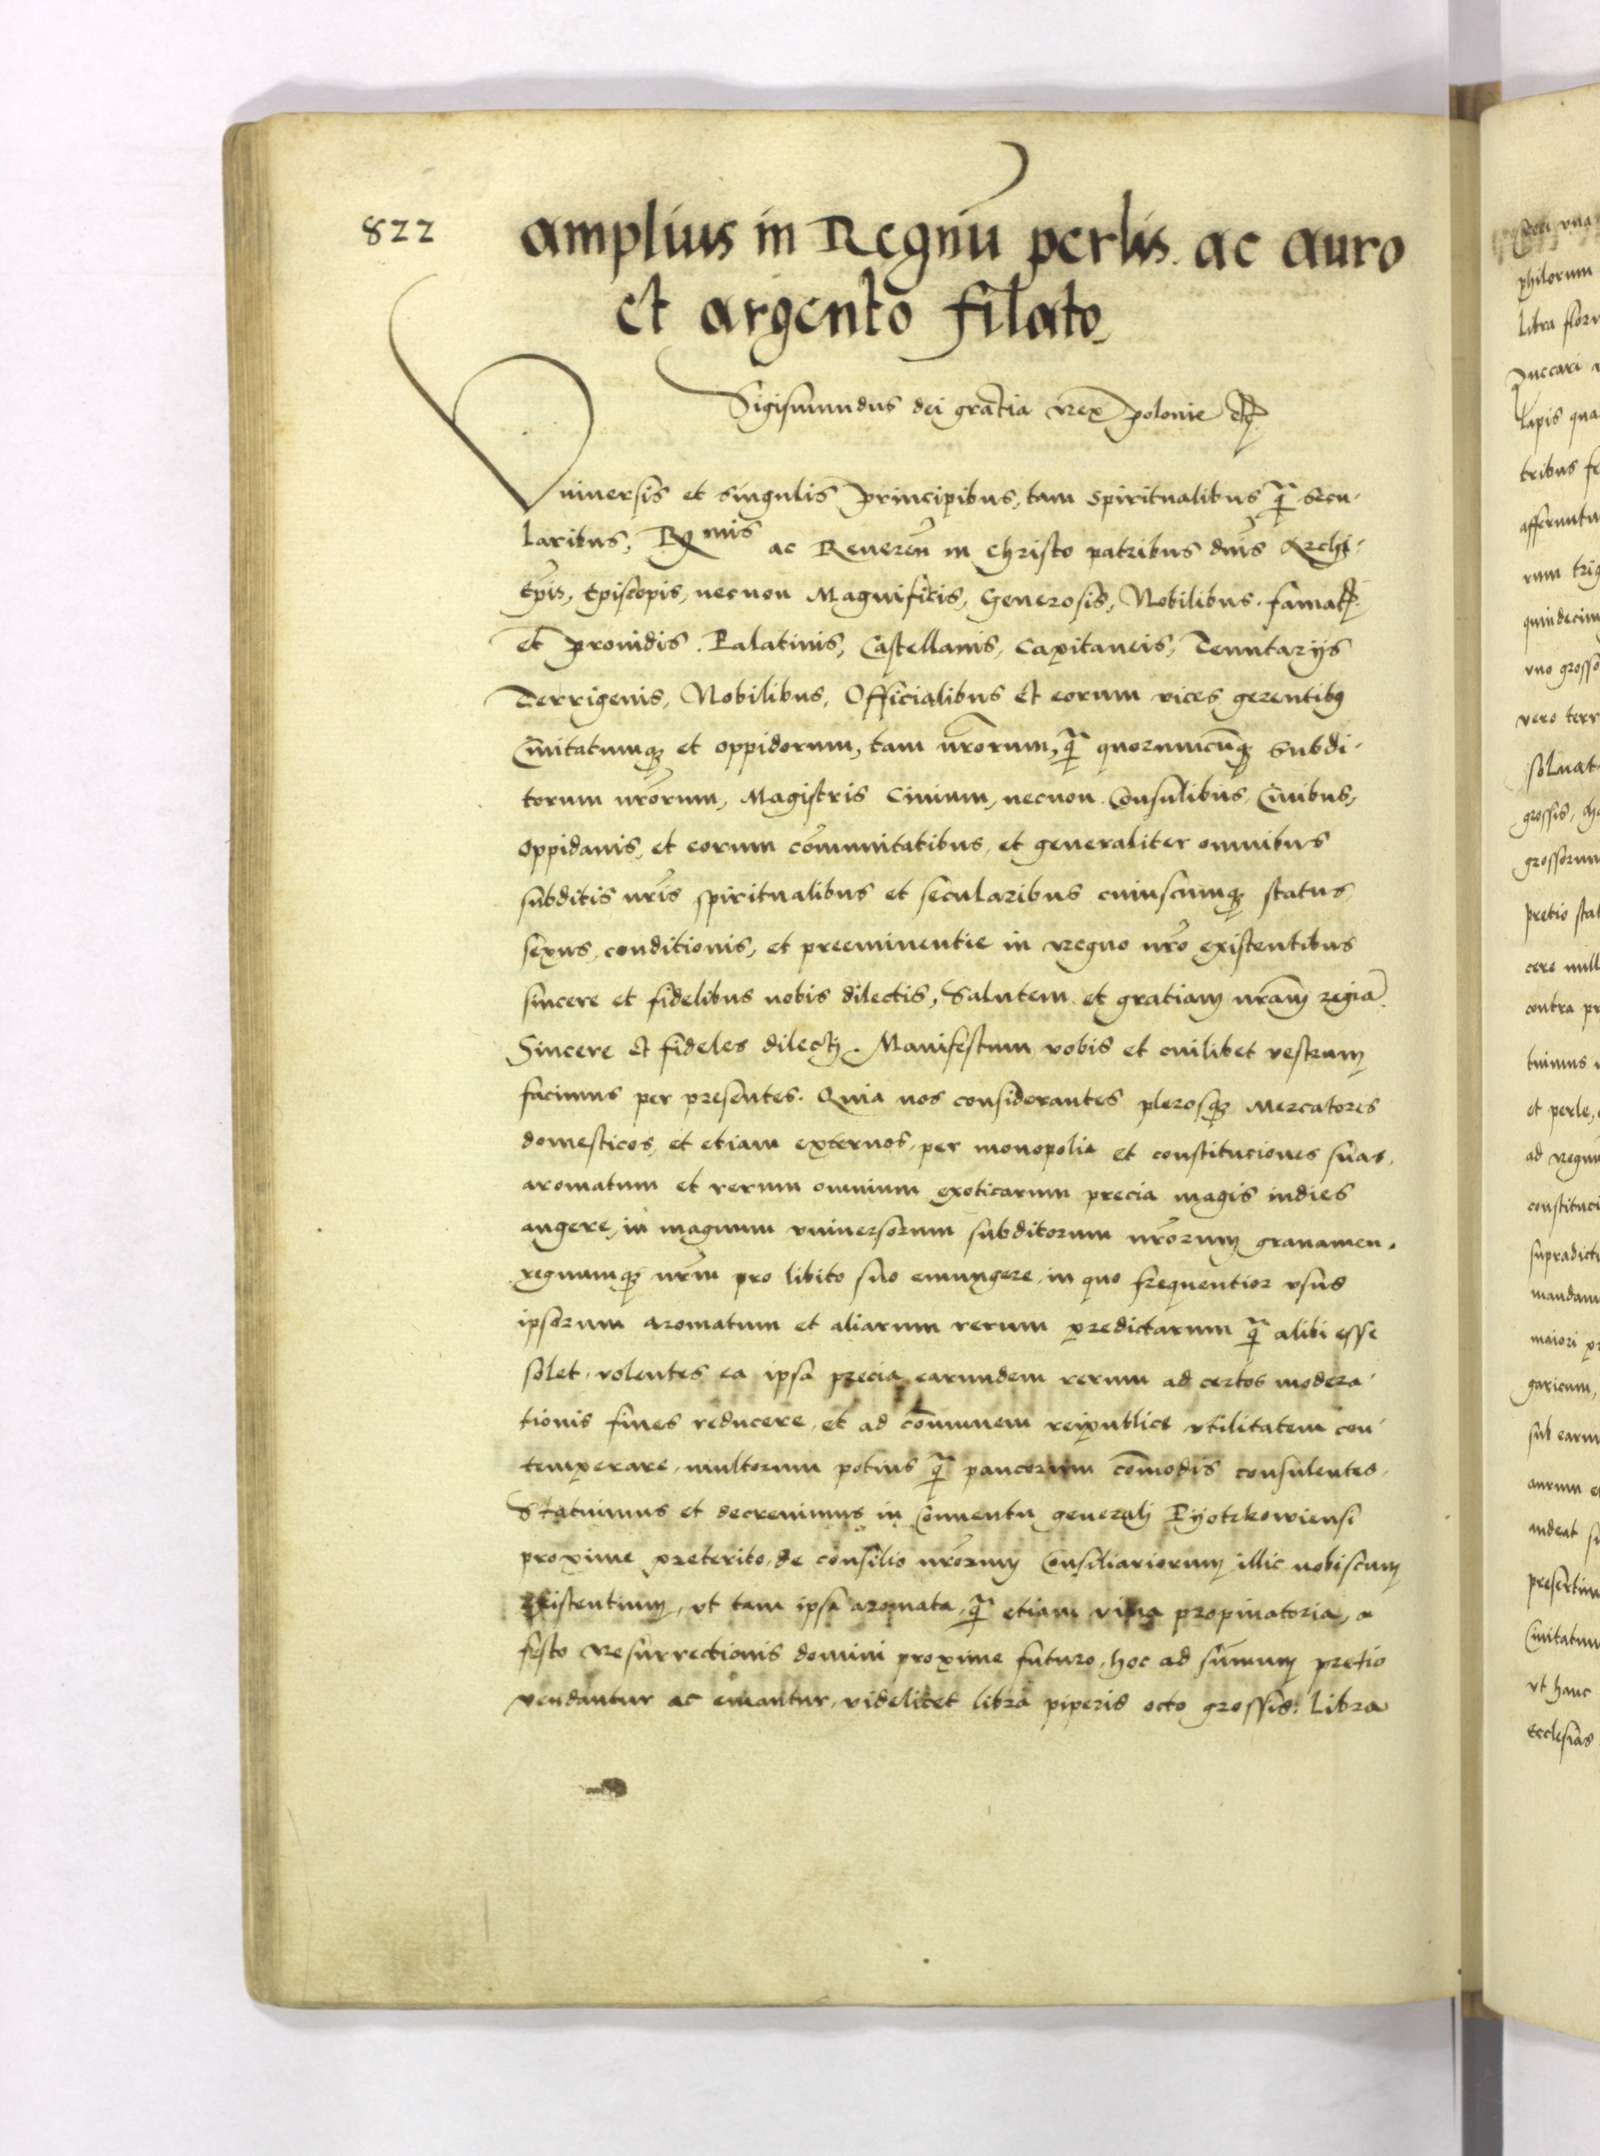 822
amplius in Regnū perlis. ac auro
et argento filato
Sigismundus dei gratia Rex polonie etc
Vniuersis et singulis principibus, tam spiritualibus q̄ secu-
laribus, Rmis ac Reueren̄ in christo patribus dnis̄ Archi-
Epis, Episcopis, necnon Magnificis, Generosis, Nobilibus. famat
et prouidis. Palatinis, Castellanis, Capitaneis, Tenutarijs
Terrigenis, Nobilibus, Officialibus et eorum vices gerentibꝫ
Ciuitatumqꝫ et oppidorum, tam nr̄orum, q̄ quorumcūqꝫ subdi-
torum nr̄orum, Magistris Ciuium, necnon Consulibus, Ciuibus,
oppidanis, et eorum cōmunitatibus, et generaliter omnibus
subditis nr̄is spiritualibus et secularibus cuiuscumqꝫ status
sexus, conditionis, et preeminentie in Regno nr̄o existentibus
sincere et fidelibus nobis dilectis, Salutem et gratiam nr̄am regiā.
Sincere et fideles dilecti. Manifestum vobis et cuilibet vestrum
facimus per presentes. Quia nos considerantes plerosqꝫ Mercatores
domesticos, et etiam externos, per monopolia et constituciones suas,
aromatum et rerum omnium exoticarum precia magis indies
augere, in magnum vniuersorum subditorum nr̄orum grauamen.
regnumqꝫ nr̄m pro libito suo emungere, in quo frequentior vsus
ipsorum aromatum et aliarum rerum predictarum q̄ alibi esse
solet, volentes ea ipsa precia earundem rerum ad certos modera-
tionis fines reducere, et ad cōmunem reipublice vtilitatem con-
temperare, multorum potius q̄ paucorum cōmodis consulentes,
Statuimus et decreuimus in Conuentu generali Pyotrkowiensi
proxime preterito, de consilio nr̄orum Consiliariorum illic nobiscum
existentium, vt tam ipsa aromata, q̄ etiam vina propinatoria, a
festo Resurrectionis domini proxime futuro, hoc ad sūmum pretio
vendantur ac emantur, videlicet libra piperis octo grossis: Libra
philorum
libra flor
lapis qua
tribus
quindecim
vno grosso
vero terr
grossis,
grossorum
pretio stat
cere null
contra pr
et perle,
ad Regnu
constituci
supradict
maiori pr
garicum,
sub earu
aurum et
presertim
Ciuitatum
vt hanc
Ecclesias